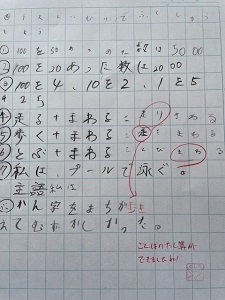 ①100を50こあつめた数は5000
②100を20あつめた数は2000
③100を4、10を2、1を5
425
④走る+まわる=走りまわる
⑤歩く+まわる=歩きまわる
⑥とぶ+まわる=とびまわる
⑦私は、プールで泳ぐ。
主語私は
かん字をまちがっ
てむずかしかった。
ことばのたし算が
できましたね!